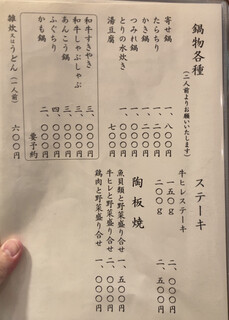 鍋物各種
(二人前よりお願いいたします)
寄せ鍋 一、八〇〇円
たらちり
かき鍋
つみれ鍋
とりの水炊き
湯豆腐 七〇〇円
和牛すきやき 三、〇〇〇円
和牛しゃぶしゃぶ 三、〇〇〇円
あんこう鍋 三、〇〇〇円
ふぐちり 四、〇〇〇円
かも鍋 二、〇〇〇円
要予約
雑炊又はうどん(一人前) 六〇〇円
ステーキ
牛ヒレステーキ
一五〇g 二、〇〇〇円
二〇〇g 二、五〇〇円
陶板焼
魚貝類と野菜盛り合せ 一、五〇〇円
牛ヒレと野菜盛り合せ 二、〇〇〇円
鶏肉と野菜盛り合せ 一、〇〇〇円